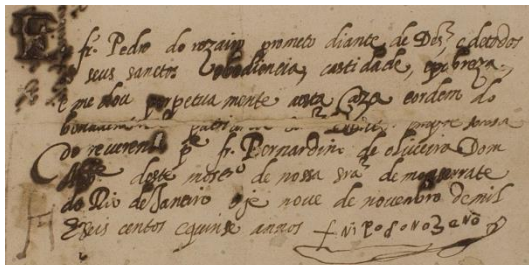 Eu fr. Pedro do rozairo prometo diante de Ds, e de todos
os seus sanctos obediencia, castidade, e pobreza,
e me dou perpetuamente a esta Caza e ordem do
patriarcha
do reverendo pe fr. Bernardino de oliveira Dom
Abbe deste mosro de nossa sra de monserrate
do Rio de Janeiro oje nove de novembro de mil
E seis centos e quinse annos